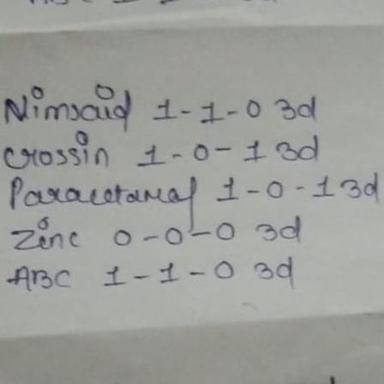 Nimsaid 1-1-0 3d
Crossin 1-0-1 3d
Paracetamal 1-0-1 3d
Zinc 0-0-0 3d
ABC 1-1-0 3d